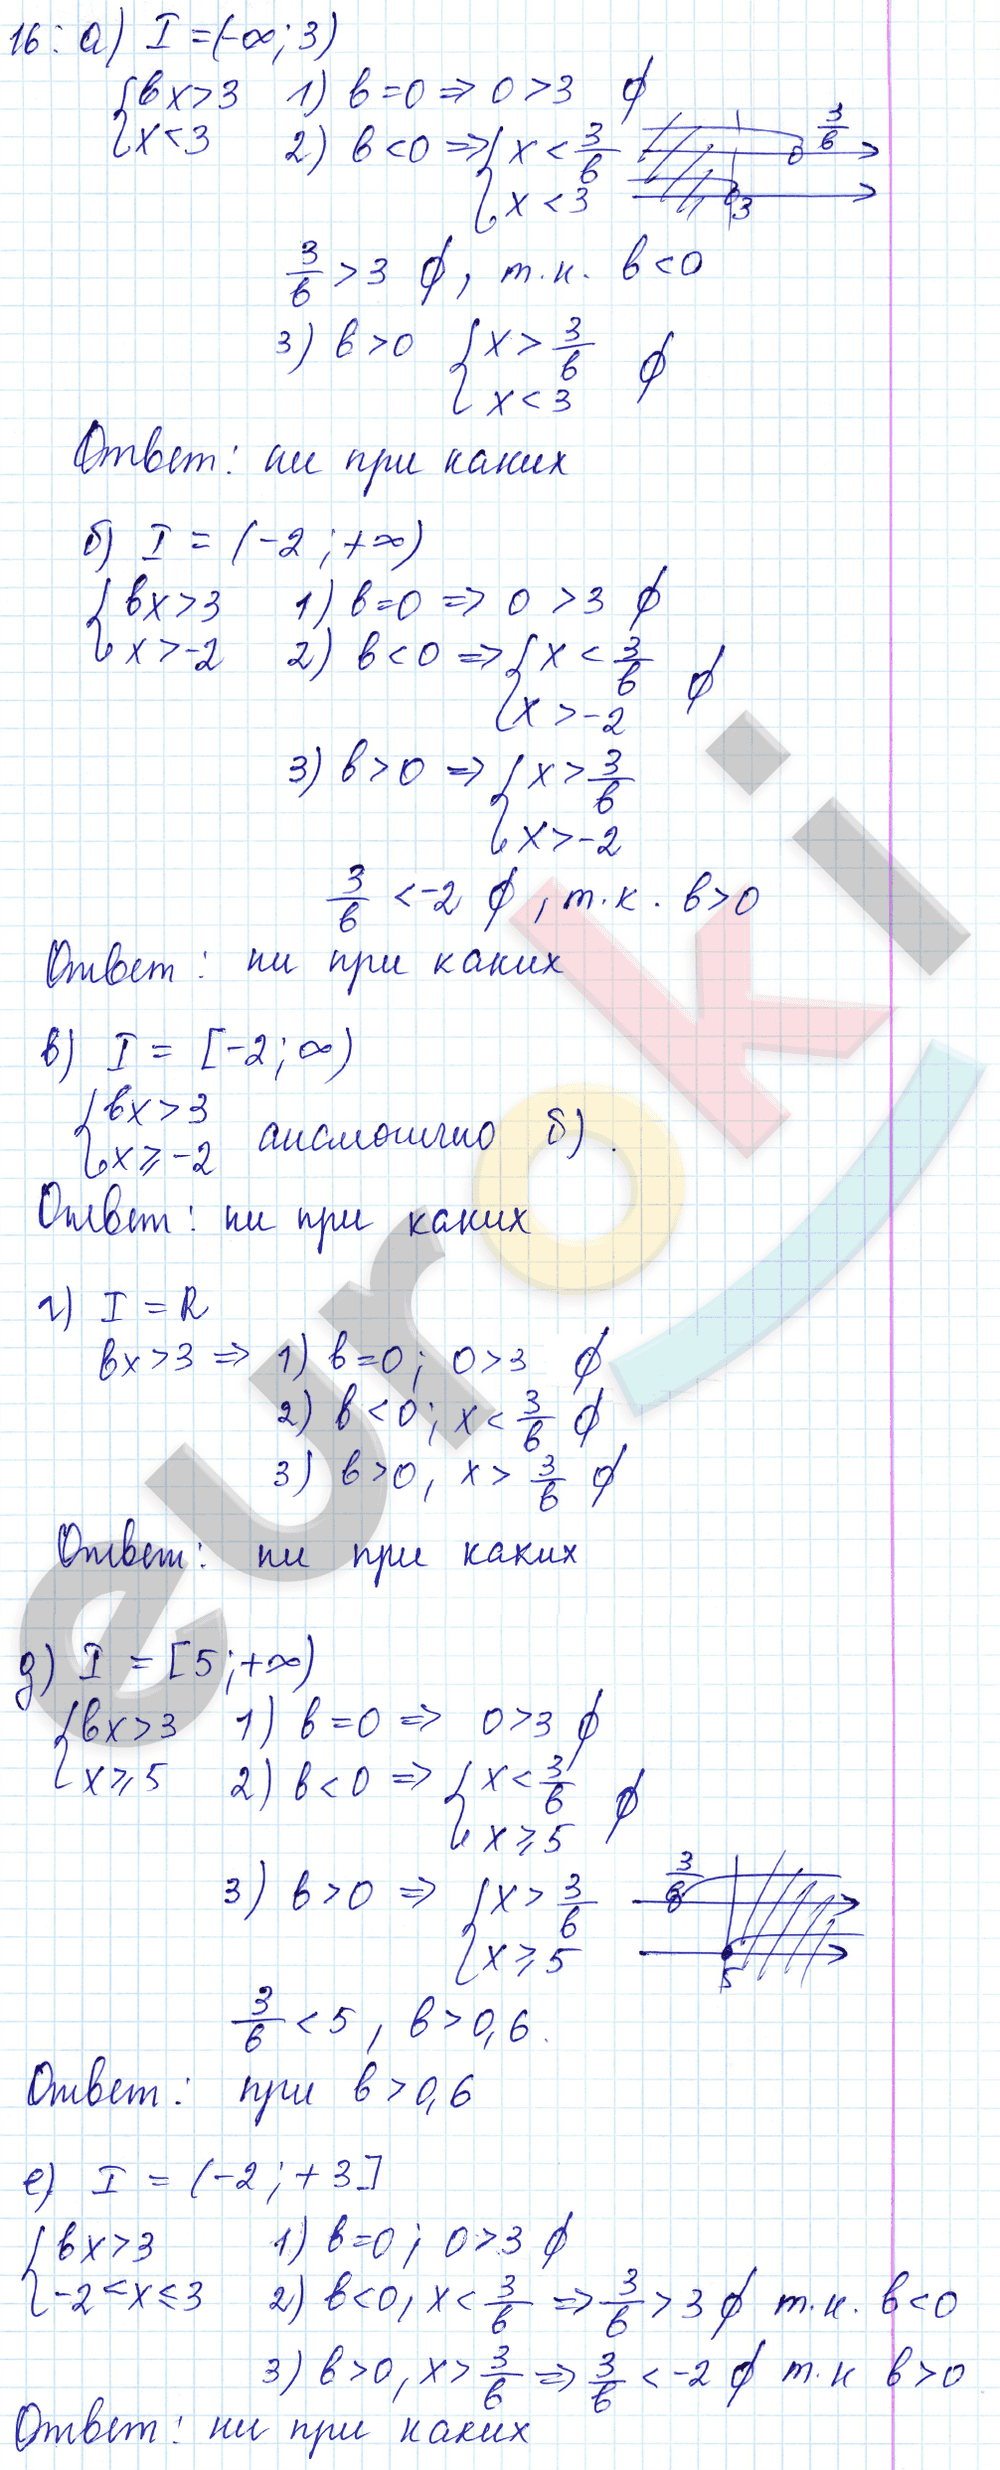 16. а) I = (-∞; 3)
{ bx > 3   1) b = 0 ⇒ 0 > 3 ∅
{ x < 3   2) b < 0 ⇒ { x < 3/b   3/b
{ x < 3   3
3/b > 3 ∅, т.к. b < 0
3) b > 0 { x > 3/b   ∅
{ x < 3
Ответ: ни при каких
б) I = (-2; +∞)
{ bx > 3   1) b = 0 ⇒ 0 > 3 ∅
{ x > -2   2) b < 0 ⇒ { x < 3/b   ∅
{ x > -2
3) b > 0 ⇒ { x > 3/b
{ x > -2
3/b < -2 ∅, т.к. b > 0
Ответ: ни при каких
в) I = [-2; ∞)
{ bx > 3
{ x ⩾ -2   аналогично б).
Ответ: ни при каких
г) I = R
bx > 3 ⇒ 1) b = 0; 0 > 3 ∅
2) b < 0; x < 3/b ∅
3) b > 0, x > 3/b ∅
Ответ: ни при каких
д) I = [5; +∞)
{ bx > 3   1) b = 0 ⇒ 0 > 3 ∅
{ x ⩾ 5   2) b < 0 ⇒ { x < 3/b   ∅
{ x ⩾ 5
3) b > 0 ⇒ { x > 3/b   3/b
{ x ⩾ 5   5
3/b < 5, b > 0,6.
Ответ: при b > 0,6
е) I = (-2; +3]
{ bx > 3   1) b = 0; 0 > 3 ∅
{ -2 < x ⩽ 3   2) b < 0, x < 3/b ⇒ 3/b > 3 ∅ т.к. b < 0
3) b > 0, x > 3/b ⇒ 3/b < -2 ∅ т.к b > 0
Ответ: ни при каких
euroki